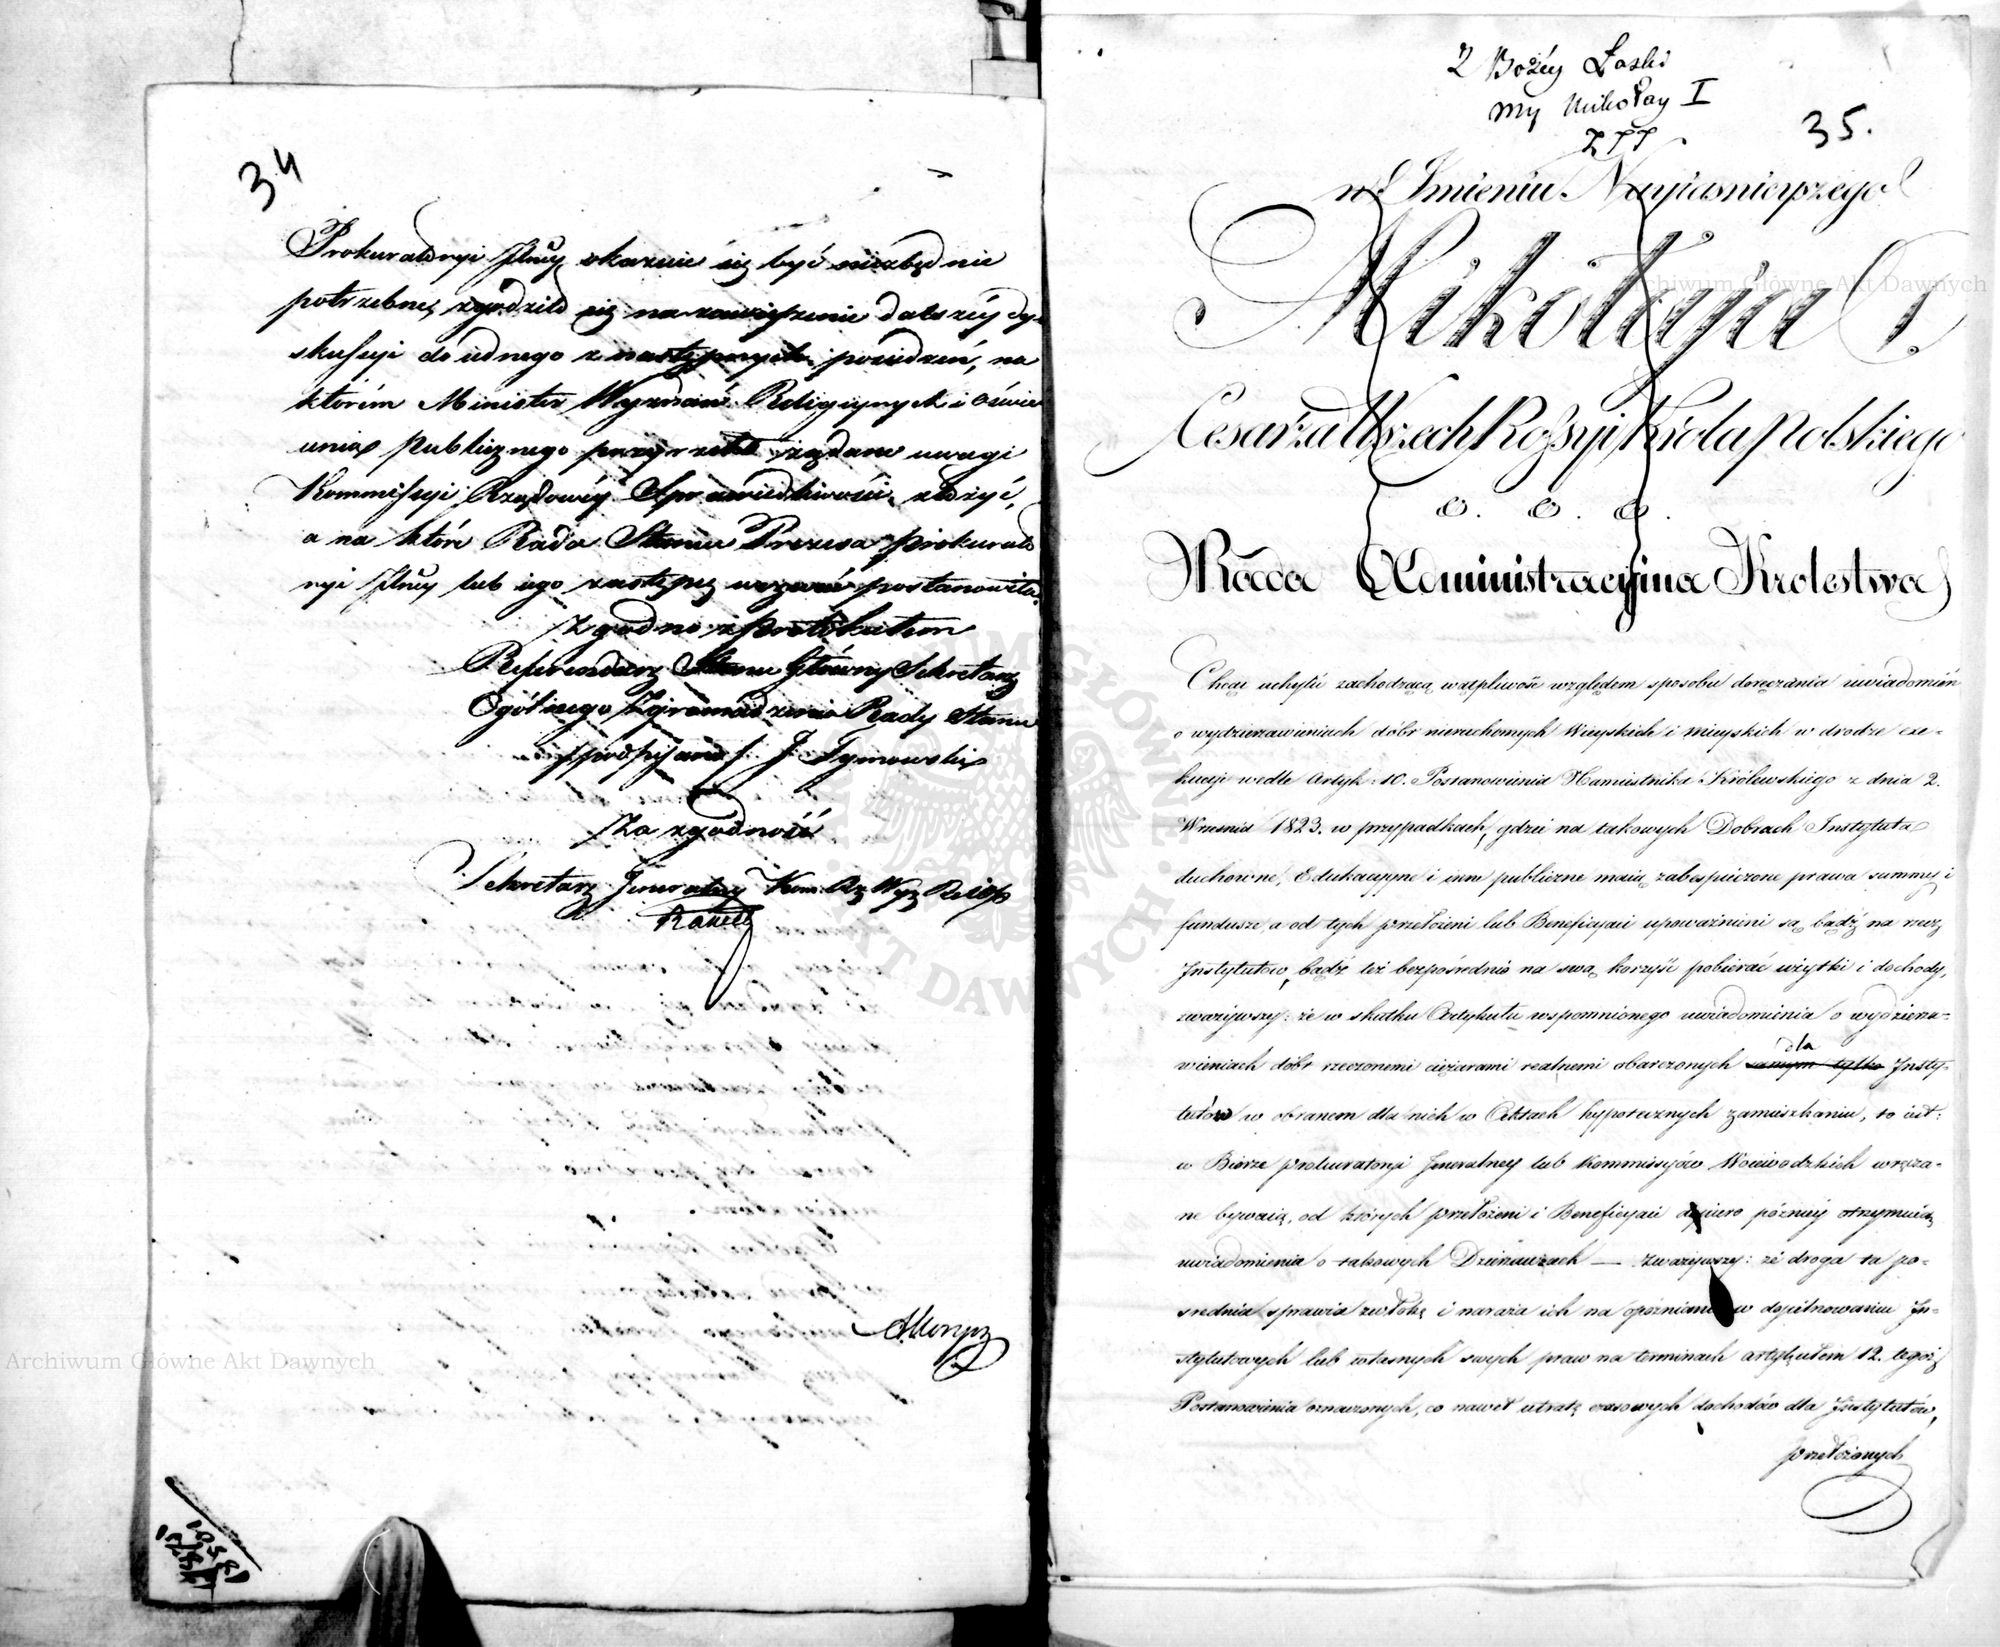 34
Prokuratoryi Jlney okazuie się być niezbędnie
potrzebne, zgodziło się na zawieszenie dalszéy dy-
skussyi do iednego z następnych posiedzeń, na
którém Minister Wyznań Religiynych i Oświe
cenia publicznego przyrzekł żądane uwagi
Kommissyi Rządowéy Sprawiedliwości złożyć,
a na które Rada Stanu Prezesa Prokurato
ryi Jlney lub iego zastępcę wezwać postanowiła.
Zgodno z protokułem
Referendarz Stanu Główny Sekretarz
Ogólnego Zgromadzenia Rady Stanu
/podpisano/ J. Tymowski
Za zgodność
Sekretarz Jeneralny Kom. Rz. Wyz. Relig.
Archiwum Główne Akt Dawnych
Z Bożéy Łaski
my Mikołay I
35.
w Imieniu Nayiaśnieyszego
Mikołaja I.
Cesarza Wszech Rossyi Króla Polskiego
&. &. &.
Rada Administracyina Krolestwa
Chcąc uchylić zachodzącą wątpliwość względem sposobu doręczania uwiadomień
o wydzierzawieniach dóbr nieruchomych Wieyskich i mieyskich w drodze exe-
kucyi wedle Artyk: 10. Postanowienia Namiestnika Królewskiego z dnia 2.
Września 1823. w przypadkach, gdzie na takowych Dobrach Instytuta
duchowne, Edukacyyne i inne publiczne maią zabespieczone prawa summy i
fundusze, a od tych przełożeni lub Beneficyaci upoważnieni są bądź na rzecz
Instytutów, bądź też bezpośrednio na swą korzyść pobierać użytki i dochody,
zważywszy: że w skutku Artykułu wspomnionego uwiadomienia o wydzierza-
wieniach dóbr rzeczonemi ciężarami realnemi obarczonych samym tylko dla Insty-
tutów w obranem dla nich w Aktach hypotecznych zamieszkaniu, to iest:
w Biorze prokuratoryi Jeneralney lub Kommissyów Woiewodzkich wręcza-
ne bywaią, od których przełożeni i Beneficyaci dopiero późniéy otrzymuią
uwiadomienia o takowych Dzierżawach — zważywszy: że droga ta po-
średnia sprawia zwłokę i naraża ich na opóźnianie w dopilnowaniu In-
stytutowych lub własnych swych praw na terminach artykułem 12. tegoż
Postanowienia oznaczonych, co nawet utratę czasowych dochodów dla Instytutów,
przełożonych